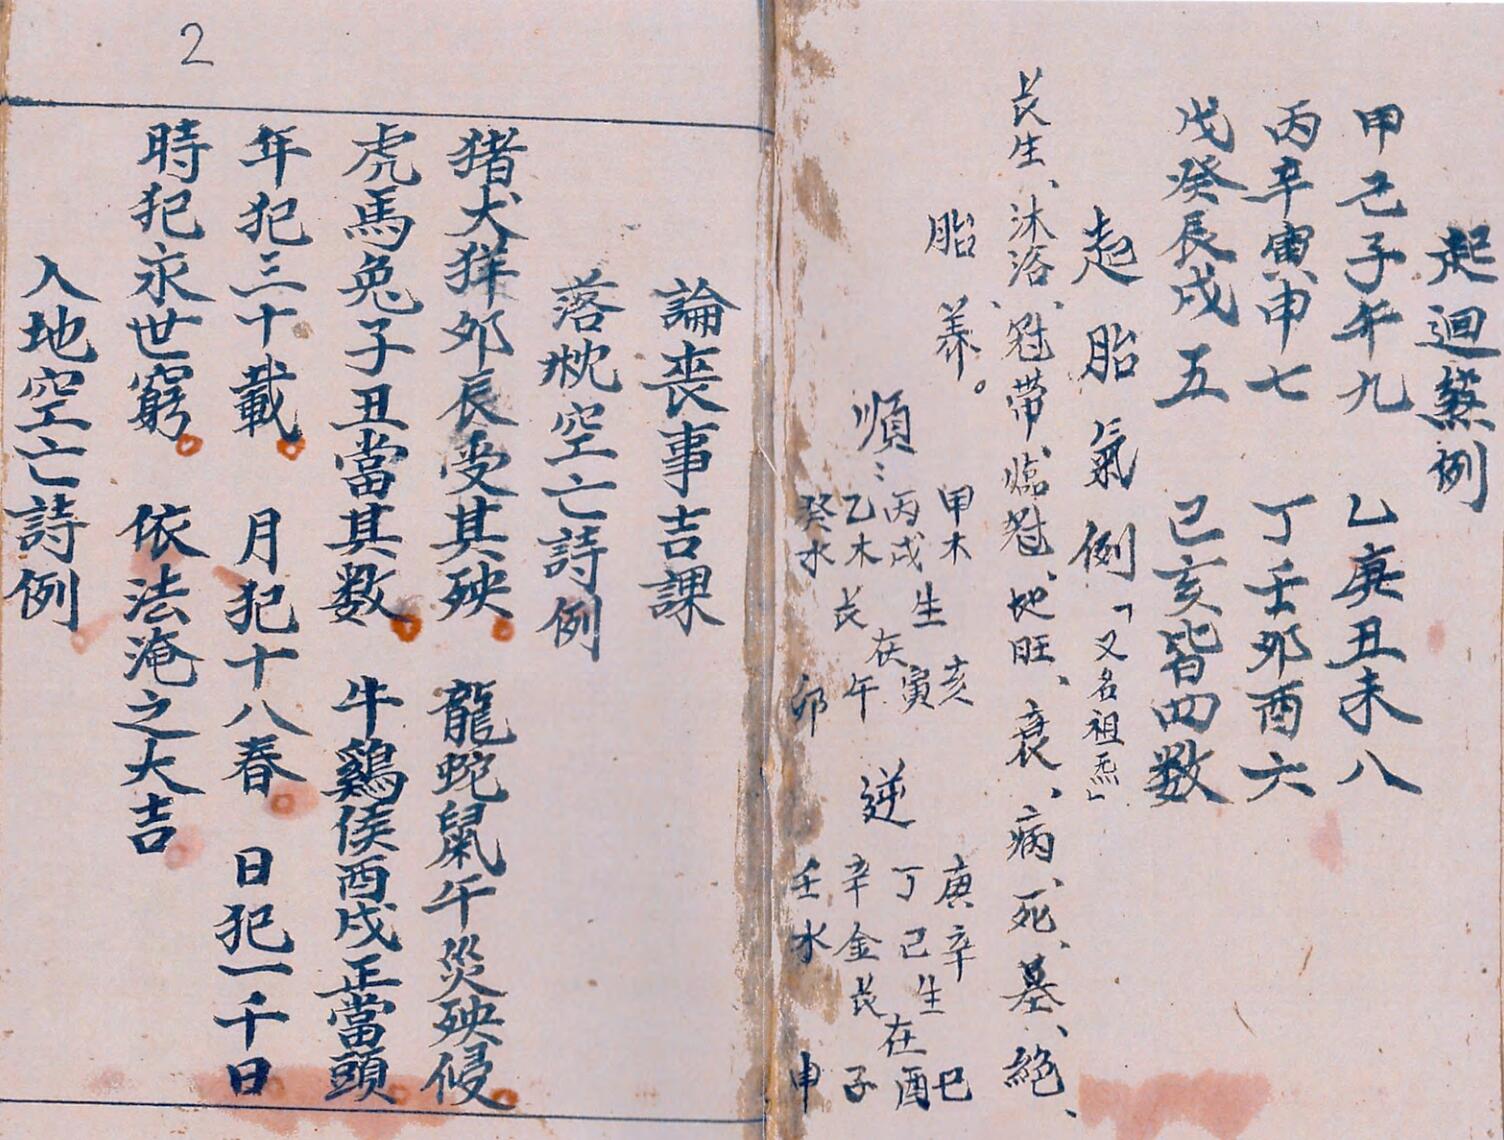 起迴煞例
甲己子午九 乙庚丑未八
丙辛寅申七 丁壬卯酉六
戊癸辰戌五 巳亥皆四数
起胎氣例「又名祖炁」
長生、沐浴、冠帶、臨冠、地旺、衰、病、死、墓、絕、
胎養。
順:
甲木生亥
丙戌 在寅
乙木長午
癸水 卯
逆
庚辛 巳
丁己生在酉
辛金長子
壬水 申
2
論喪事吉課
落枕空亡詩例
猪犬羊卯辰受其殃 龍蛇鼠午災殃侵
虎馬兔子丑當其数 牛鷄侯酉戌正當頭
年犯三十載 月犯十八春 日犯一千日
時犯永世窮 依法淹之大吉
入地空亡詩例